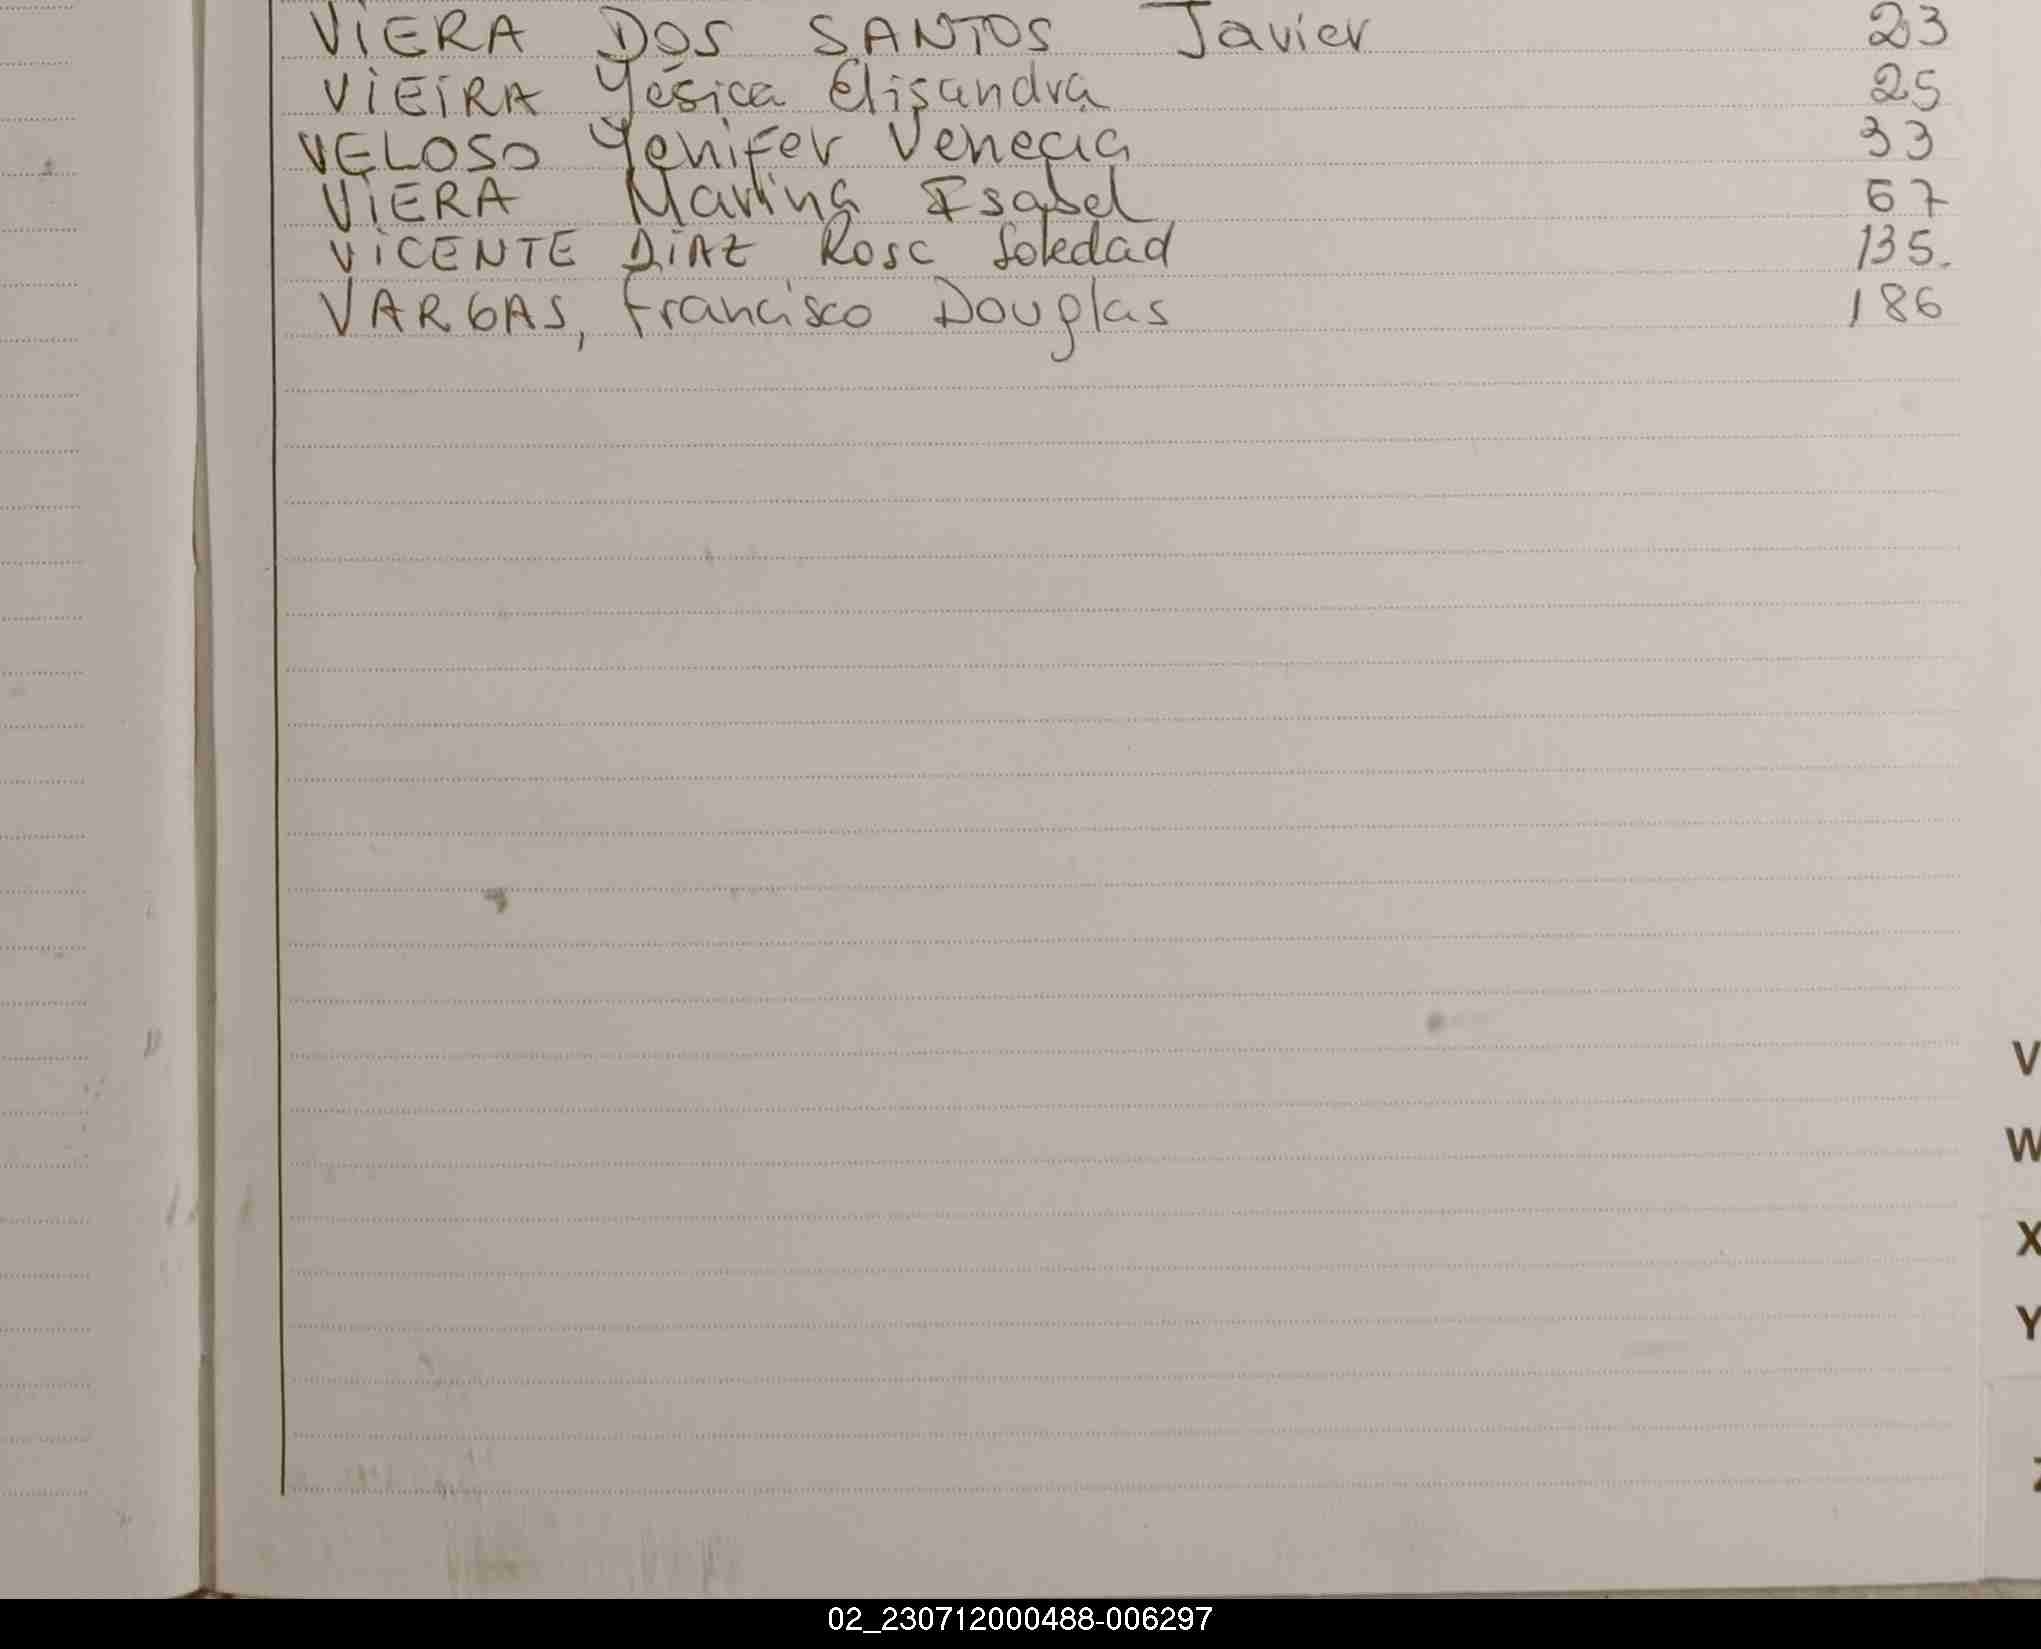 VIERA DOS SANTOS Javier 23
VIEIRA Yésica Elisandra 25
VELOSO Yenifer Venecia 33
VIERA Marina Isabel 67
VICENTE DIAZ Rosa Soledad 135.
VARGAS, Francisco Douglas 186
V
W
X
Y
Z
02_230712000488-006297